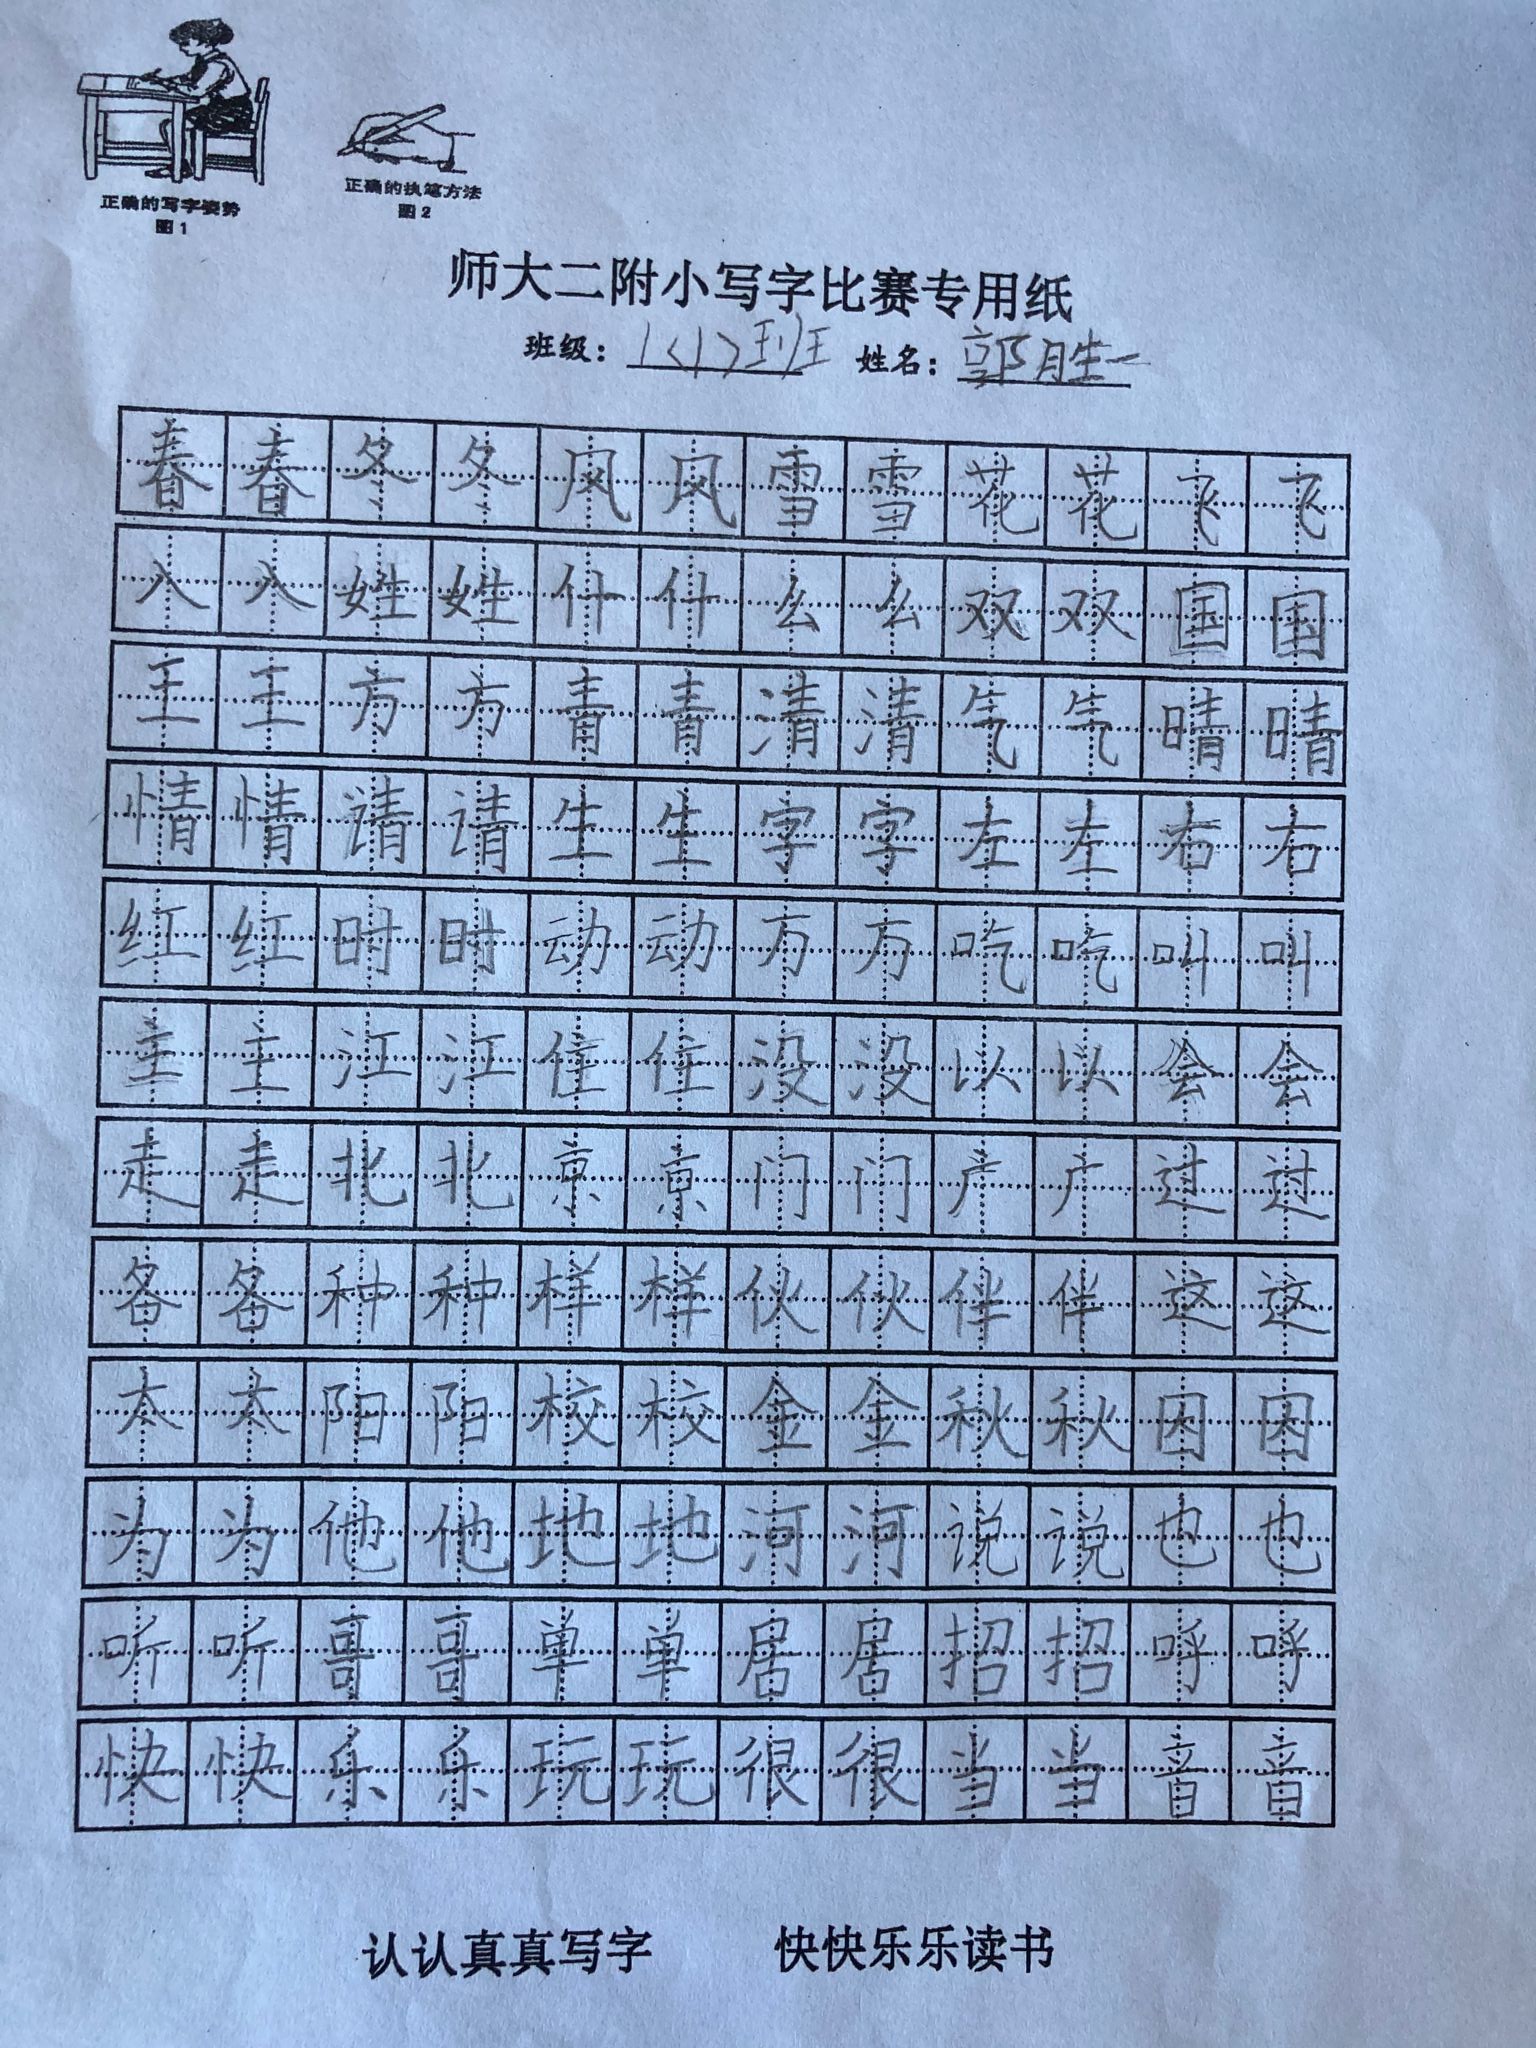 正确的写字姿势
图1
正确的执笔方法
图2
师大二附小写字比赛专用纸
班级：1<1>班 姓名：郭胜一
春春冬冬风风雪雪花花飞飞
入入姓姓什什么么双双国国
王王方方青青清清气气晴晴
情情请请生生字字左左右右
红红时时动动万万吃吃叫叫
主主江江住住没没以以会会
走走北北京京门门产广过过
备备种种样样伙伙伴伴这这
太太阳阳校校金金秋秋因因
为为他他地地河河说说也也
听听哥哥单单居居招招呼呼
快快乐乐玩玩很很当当音音
认认真真写字 快快乐乐读书